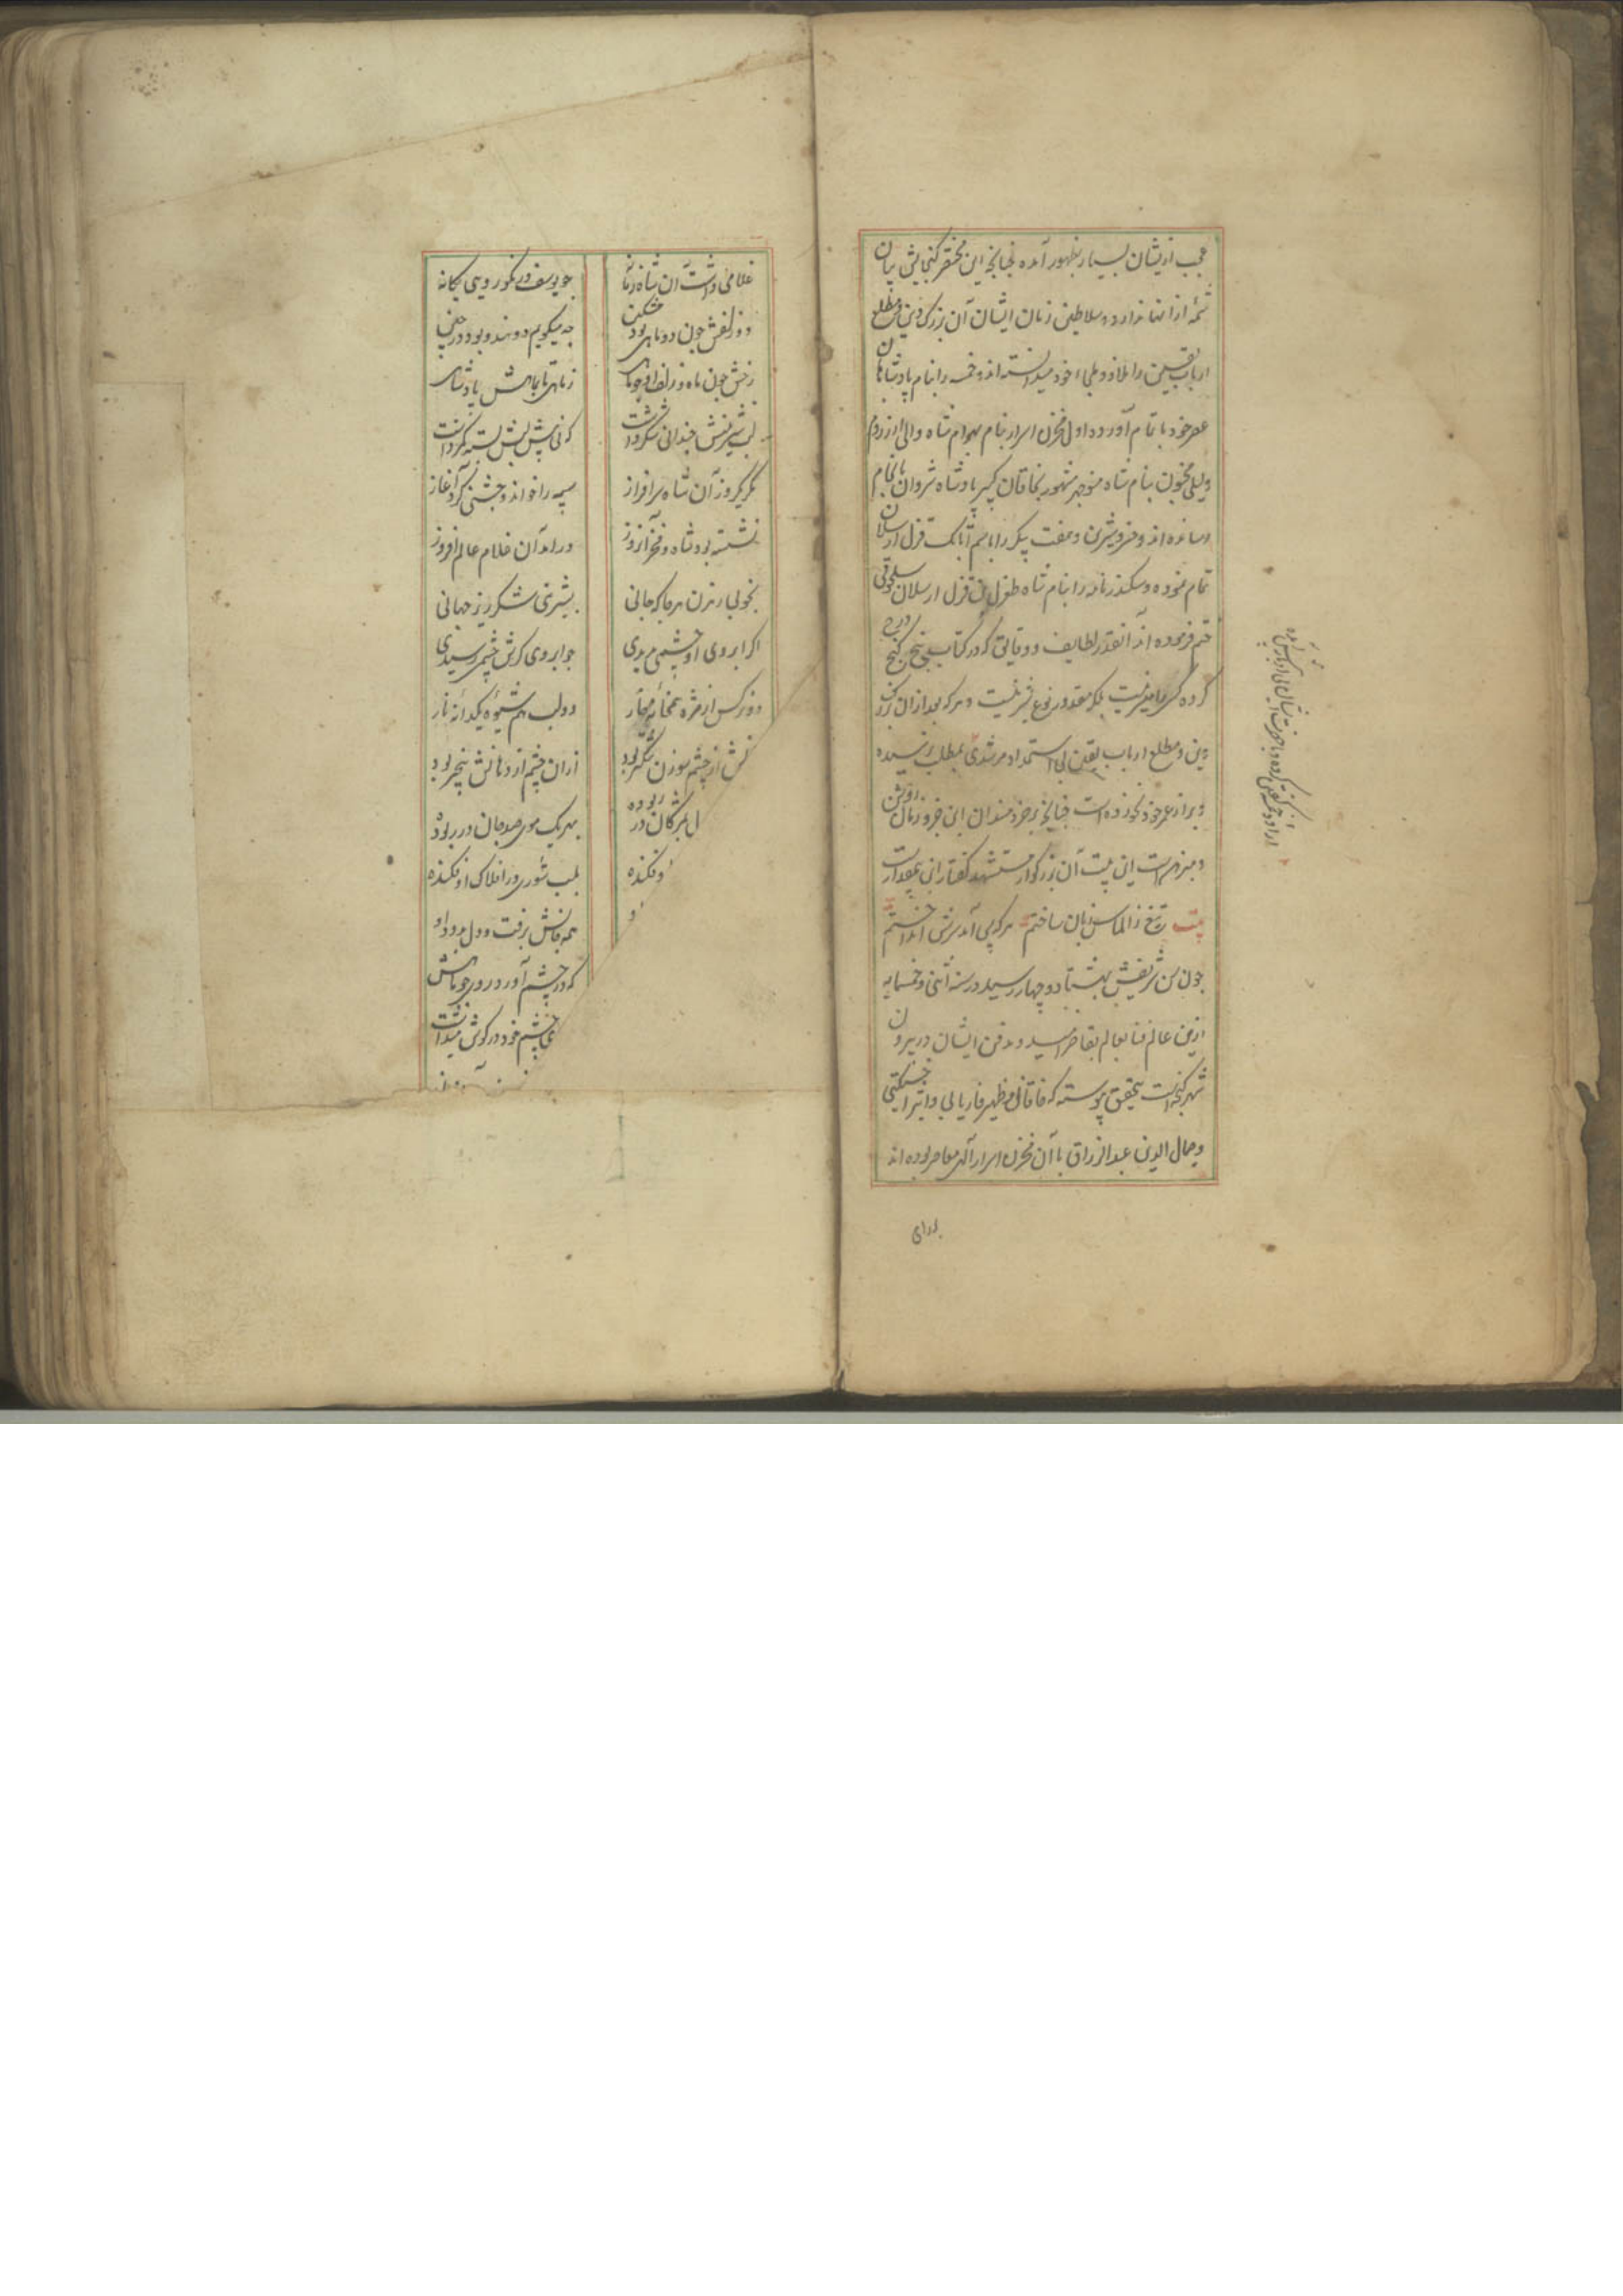 عجب ازیشان بسیار بظهور آمده چنانچه این مختصر گنجایش بیان
شمهٔ از آنها ندارد و سلاطین زمان ایشان آن بزرک دین و مطلع
ارباب یقین را ملاذ و ملجاء خود میدانسته اند و خمسه را بنام پادشاهان
عصر خود باتمام آورده اول مخزن اسرار بنام بهرام شاه والی ارزروم
و لیلی مجنون بنام شاه منوچهر مشهور بخاقان کبیر پادشاه شروان بانجام
رسانده اند و خسرو شیرین و هفت پیکر را باسم اتابک قزل ارسلان
تمام نموده و سکندرنامه را بنام شاه طغرل بن قزل ارسلان سلجوقی
ختم فرموده اند آنقدر لطایف و دقایق که در کتاب پنج گنج درج
کرده کسی را میسر نیست بلکه مقدور نوع بشر نیست و هر که بعد از آن رکن
دین و مطلع ارباب یقین بی استمداد مرشدی بمطلب نرسیده
و بر از عمر خود نخورده است چنانچه بر خردمندان این خرد زمان روشن
و مبرهن است این بیت آن بزرکوار مستشهد گفتار این بیمقدار است
بیت تیغ ز الماس زبان ساختم هر که پی آمد سرش انداختم
چون سن شریفش بهشتاد و چهار رسید در سنه اثنی و خمسمایه
ازین عالم فنا بعالم بقا خرامید و مدفن ایشان در بیرون
شهر گنجه است بتحقیق پیوسته که خاقانی و ظهیر فاریابی و اثیر اخسیکتی
و جمال الدین عبدالرزاق با آن مخزن اسرار آلهی معاصر بوده اند
غلامی داشت آن شاه زمانه
چو یوسف در نکورویی یگانه
دو زلفش چون دو ماهی بود مشکین
چه میکویم دو هندو بود در چین
رخش چون ماه و زلف او چو ماهی
ز ماهی تا بماهش پادشاهی
لب شیرینش چندانی شکر داشت
که نی پیش لبش بسته کمر داشت
مگر یکروز آن شاه سرافراز
سپه را خواند و جشنی کرد آغاز
نشسته بود شاه و فخر آنروز
درآمد آن غلام عالم افروز
بخوبی رهزن هر جا که جانی
بشیرینی شکرریز جهانی
اگر ابروی او چشمی بدیدی
چو ابروی کژش چشمش رسیدی
دو نرکس از مژه همخانهٔ خار
دو لب هم شیوهٔ یکدانهٔ نار
تنش از چشم سوزن تنکتر بود
از آن چشم از دهانش بیخبر بود
مژکان در ربوده
بهر یک موی صد جان در ربوده
اوفکنده
بلب شوری در افلاک اوفکنده
همه جانش برفت و دل بدو داد
که در چشم آورد روی چو ماهش
چشم خود در کوش میداشت